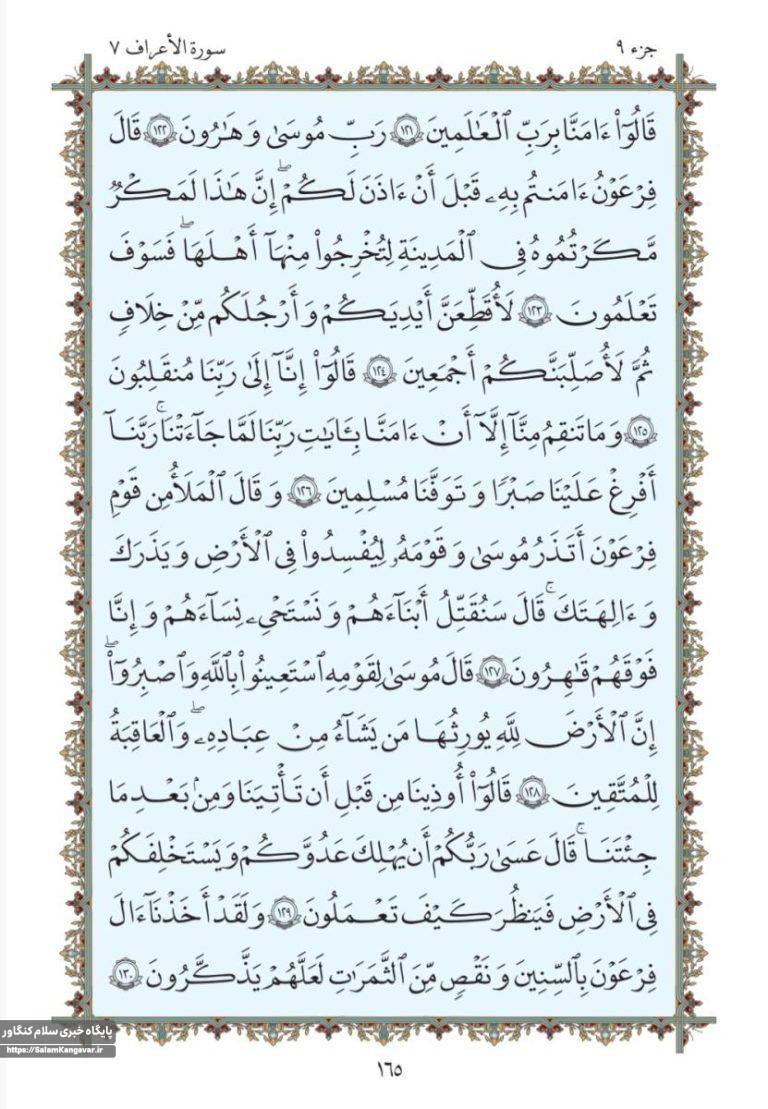 جزء ٩
سورة الأعراف ٧
قَالُوٓاْ ءَامَنَّا بِرَبِّ ٱلۡعَٰلَمِينَ ١٢١ رَبِّ مُوسَىٰ وَهَٰرُونَ ١٢٢ قَالَ
فِرۡعَوۡنُ ءَامَنتُم بِهِۦ قَبۡلَ أَنۡ ءَاذَنَ لَكُمۡۖ إِنَّ هَٰذَا لَمَكۡرٞ
مَّكَرۡتُمُوهُ فِي ٱلۡمَدِينَةِ لِتُخۡرِجُواْ مِنۡهَآ أَهۡلَهَاۖ فَسَوۡفَ
تَعۡلَمُونَ ١٢٣ لَأُقَطِّعَنَّ أَيۡدِيَكُمۡ وَأَرۡجُلَكُم مِّنۡ خِلَٰفٖ
ثُمَّ لَأُصَلِّبَنَّكُمۡ أَجۡمَعِينَ ١٢٤ قَالُوٓاْ إِنَّآ إِلَىٰ رَبِّنَا مُنقَلِبُونَ
١٢٥ وَمَا تَنقِمُ مِنَّآ إِلَّآ أَنۡ ءَامَنَّا بِـَٔايَٰتِ رَبِّنَا لَمَّا جَآءَتۡنَاۚ رَبَّنَآ
أَفۡرِغۡ عَلَيۡنَا صَبۡرٗا وَتَوَفَّنَا مُسۡلِمِينَ ١٢٦ وَقَالَ ٱلۡمَلَأُ مِن قَوۡمِ
فِرۡعَوۡنَ أَتَذَرُ مُوسَىٰ وَقَوۡمَهُۥ لِيُفۡسِدُواْ فِي ٱلۡأَرۡضِ وَيَذَرَكَ
وَءَالِهَتَكَۚ قَالَ سَنُقَتِّلُ أَبۡنَآءَهُمۡ وَنَسۡتَحۡيِۦ نِسَآءَهُمۡ وَإِنَّا
فَوۡقَهُمۡ قَٰهِرُونَ ١٢٧ قَالَ مُوسَىٰ لِقَوۡمِهِ ٱسۡتَعِينُواْ بِٱللَّهِ وَٱصۡبِرُوٓاْۖ
إِنَّ ٱلۡأَرۡضَ لِلَّهِ يُورِثُهَا مَن يَشَآءُ مِنۡ عِبَادِهِۦۖ وَٱلۡعَٰقِبَةُ
لِلۡمُتَّقِينَ ١٢٨ قَالُوٓاْ أُوذِينَا مِن قَبۡلِ أَن تَأۡتِيَنَا وَمِنۢ بَعۡدِ مَا
جِئۡتَنَاۚ قَالَ عَسَىٰ رَبُّكُمۡ أَن يُهۡلِكَ عَدُوَّكُمۡ وَيَسۡتَخۡلِفَكُمۡ
فِي ٱلۡأَرۡضِ فَيَنظُرَ كَيۡفَ تَعۡمَلُونَ ١٢٩ وَلَقَدۡ أَخَذۡنَآ ءَالَ
فِرۡعَوۡنَ بِٱلسِّنِينَ وَنَقۡصٖ مِّنَ ٱلثَّمَرَٰتِ لَعَلَّهُمۡ يَذَّكَّرُونَ ١٣٠
پایگاه خبری سلام کنگاور
https://SalamKangavar.ir
١٦٥